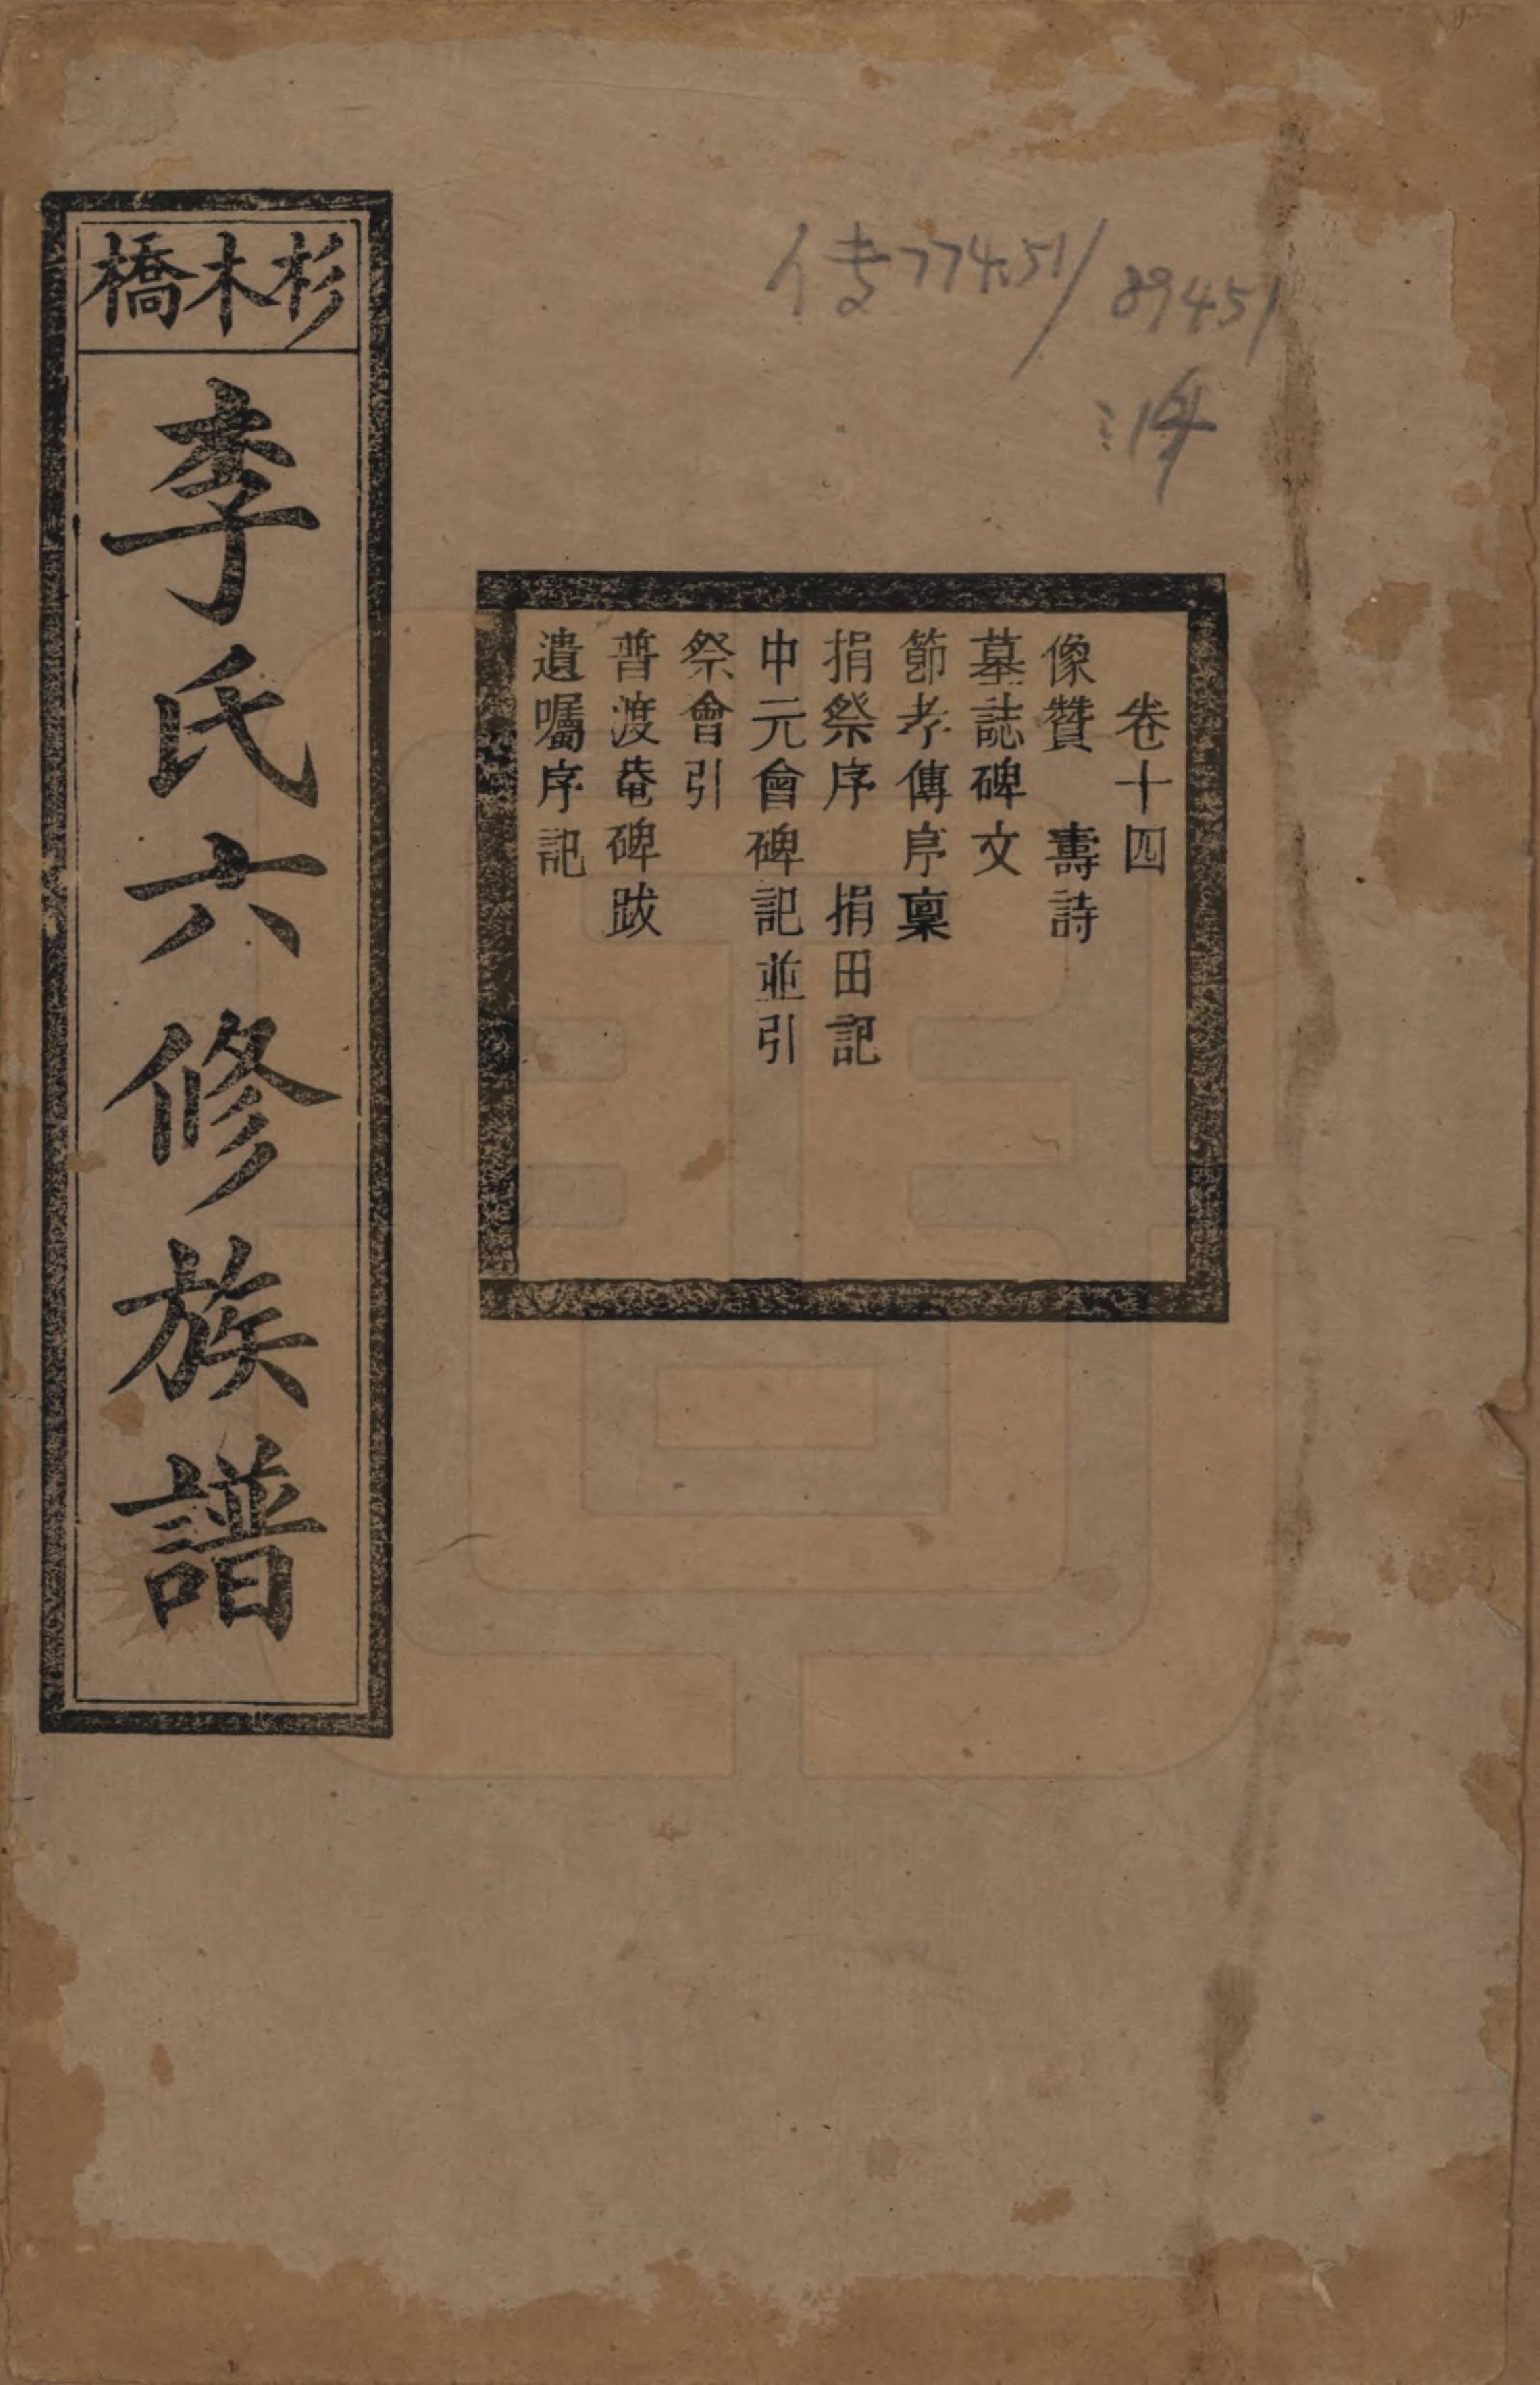 杉木橋
李氏六修族譜
傳774.51/89451
卷十四
像贊　壽詩
墓誌碑文
節孝傳序稟
捐祭序　捐田記
中元會碑記並引
祭會引
普渡菴碑跋
遺囑序記